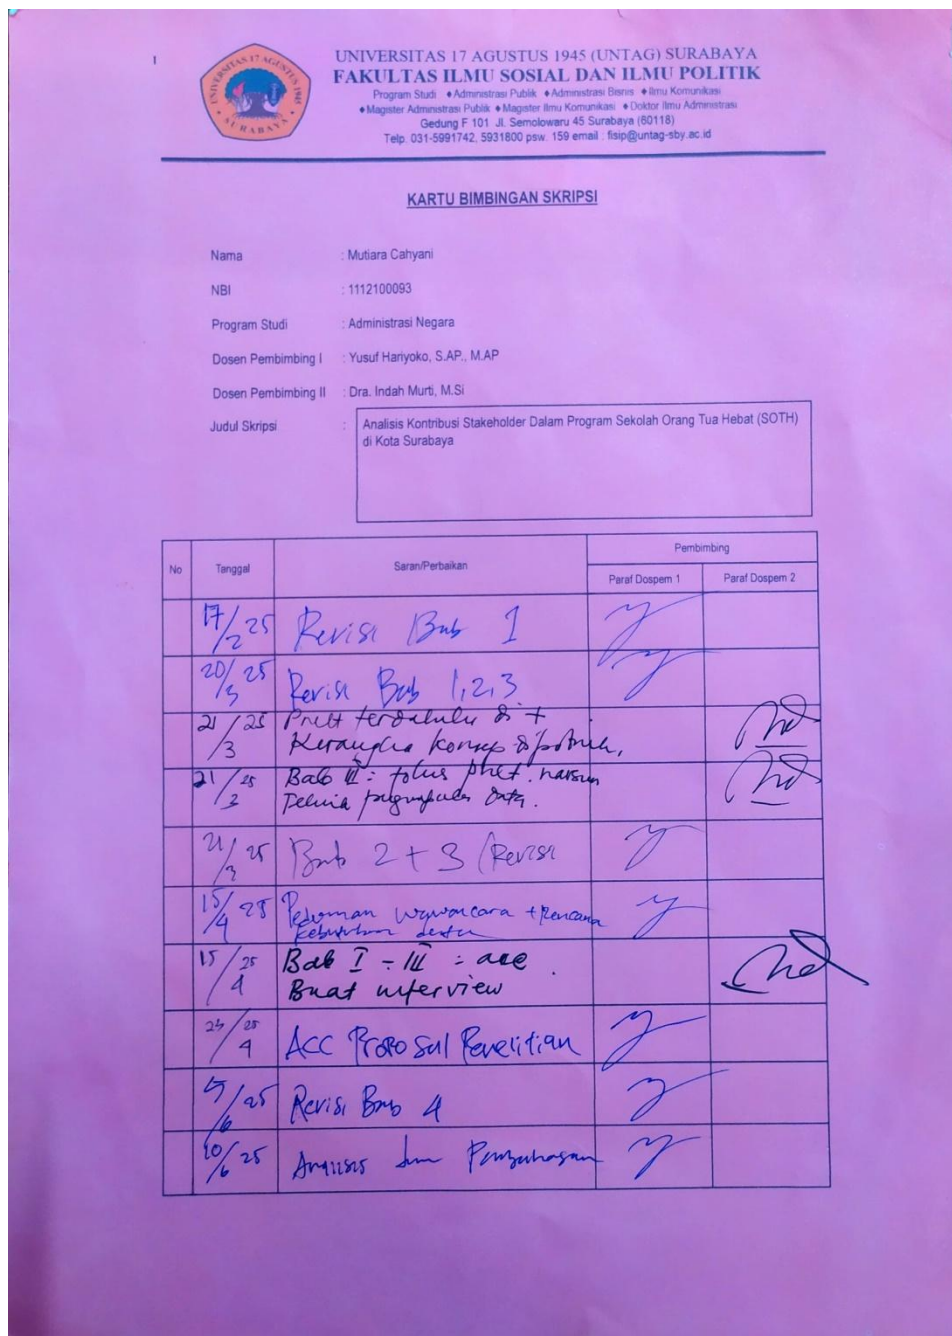 UNIVERSITAS 17 AGUSTUS 1945 (UNTAG) SURABAYA
FAKULTAS ILMU SOSIAL DAN ILMU POLITIK
Program Studi ♦Administrasi Publik ♦Administrasi Bisnis ♦Ilmu Komunikasi
♦Magister Administrasi Publik ♦Magister Ilmu Komunikasi ♦Doktor Ilmu Administrasi
Gedung F 101 Jl. Semolowaru 45 Surabaya (60118)
Telp. 031-5991742, 5931800 psw. 159 email : fisip@untag-sby.ac.id
UNIVERSITAS 17 AGUSTUS 1945
SURABAYA
KARTU BIMBINGAN SKRIPSI
Nama : Mutiara Cahyani
NBI : 1112100093
Program Studi : Administrasi Negara
Dosen Pembimbing I : Yusuf Hariyoko, S.AP., M.AP
Dosen Pembimbing II : Dra. Indah Murti, M.Si
Judul Skripsi : Analisis Kontribusi Stakeholder Dalam Program Sekolah Orang Tua Hebat (SOTH)
di Kota Surabaya
No Tanggal Saran/Perbaikan Pembimbing
Paraf Dospem 1 Paraf Dospem 2
17/2 25 Revisi Bab 1
20/3 25 Revisi Bab 1,2,3
21/3 25 terdahulu di +
Kerangka konsep
21/3 25 Bab III : fokus
data.
21/3 25 Bab 2 + 3 (Revisi
15/4 25 Pedoman wawancara + Rencana
kebutuhan data
15/4 25 Bab I - III : acc
Buat interview
/4 25 ACC Proposal Penelitian
/6 25 Revisi Bab 4
/6 25 Analisis dan Pembahasan